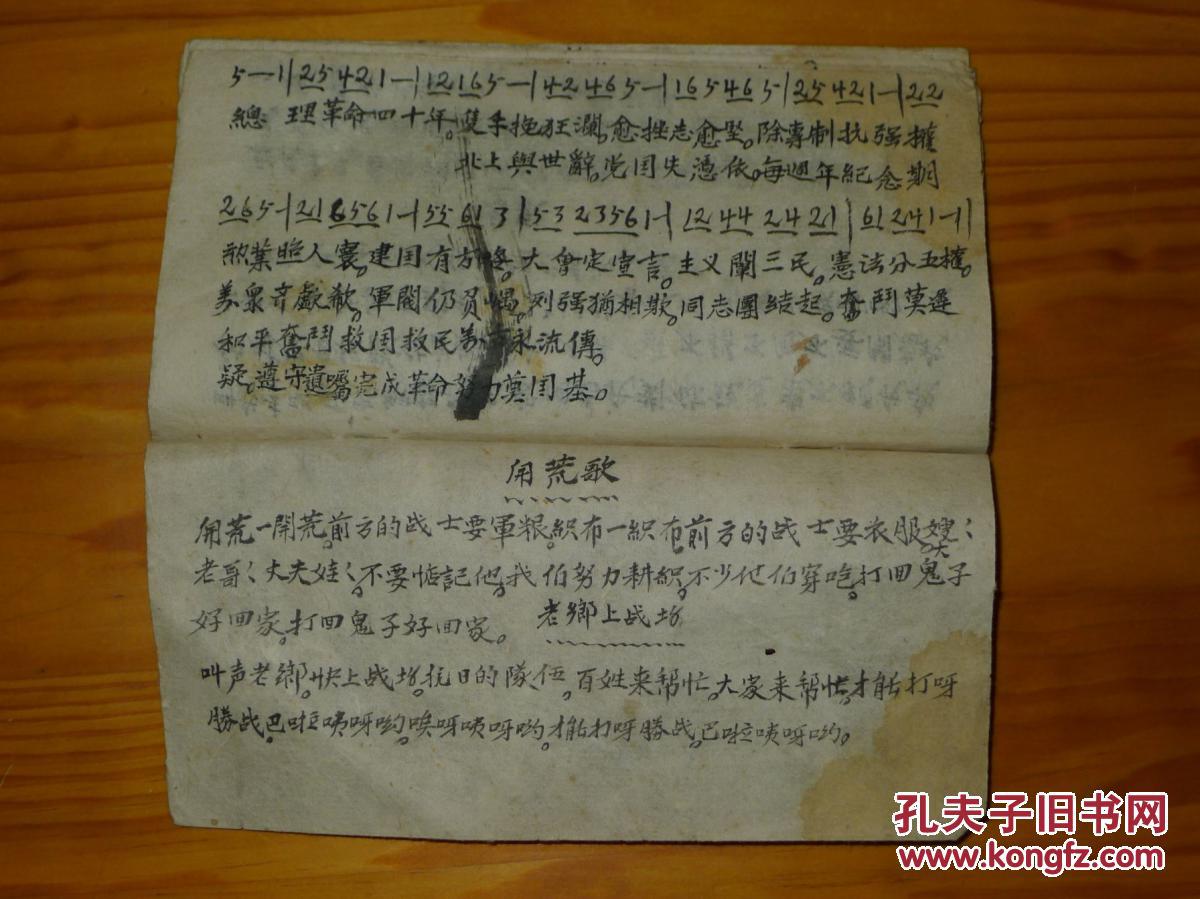 5—1|25 421—|12 165—|42 465—|165465|25 421—|22
總理革命四十年。雙手挽狂瀾。愈挫志愈坚。除專制抗强權
北上與世辭。党国失憑依。每週年紀念期
265—|216561—|55 61 3|53 23561—|12 44 24 21|61 241—1|
勲業照人寰。建国有方畧。大會定宣言。主义闡三民。憲法分五權。
羣眾咅歔欷。軍閥仍負嵎。列强猶相欺。同志團結起。奮鬥莫遲
和平奮鬥救国救民萬永流傳。
疑。遵守遺囑完成革命努力奠国基。
開荒歌
開荒一開荒。前方的战士要軍粮。織布一織布前方的战士要衣服。大嫂〻
老哥〻丈夫娃〻。不要惦記他。我伯努力耕織。不少他伯穿吃。打回鬼子
好回家。打回鬼子好回家。
老鄉上战场
叫声老鄉。快上战场。抗日的隊伍。百姓来帮忙。大家来帮忙。才能打呀
勝战。巴啦咦呀哟。唉呀咦呀哟。才能打呀勝战。巴啦咦呀哟。
孔夫子旧书网
www.kongfz.com